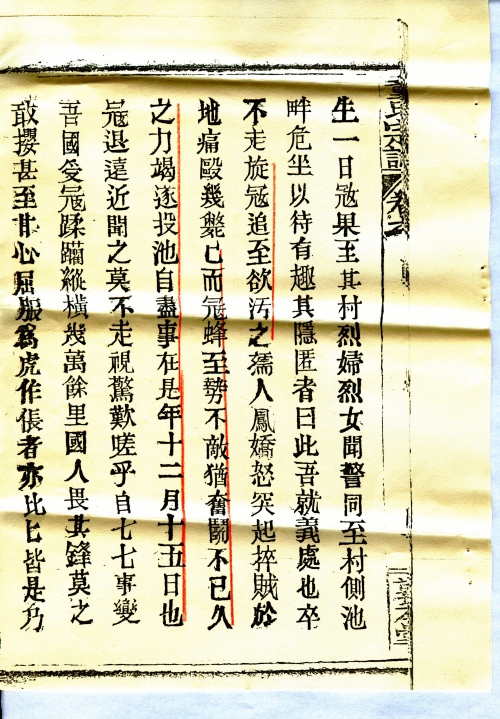 生一日寇果至其村烈婦烈女聞警同至村側池
畔危坐以待有趣其隱匿者曰此吾就義處也卒
不走旋寇追至欲汚之孺人鳳嬌怒突起捽賊於
地痛毆幾斃已而寇蜂至勢不敵猶奮鬪不已久
之力竭遂投池自盡事在是年十二月十五日也
寇退遠近聞之莫不走視驚歎嗟乎自七七事變
吾國受寇蹂躪縱橫幾萬餘里國人畏其鋒莫之
敢攖甚至甘心屈服爲虎作倀者亦比匕皆是乃